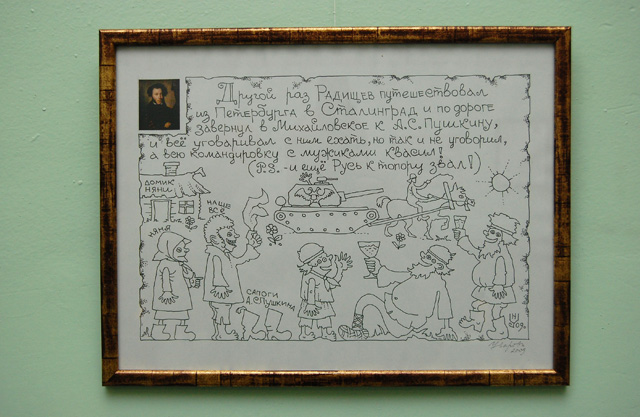 Другой раз Радищев путешествовал
из Петербурга в Сталинград и по дороге
завернул в Михайловское к А.С. Пушкину,
и всё уговаривал с ним ехать, но так и не уговорил,
а всю командировку с мужиками квасил!
(P.S. - и ещё Русь к топору звал!)
ДОМИК
НЯНИ
НАШЕ
ВСЁ
НЯНЯ
САПОГИ
А.С. ПУШКИНА